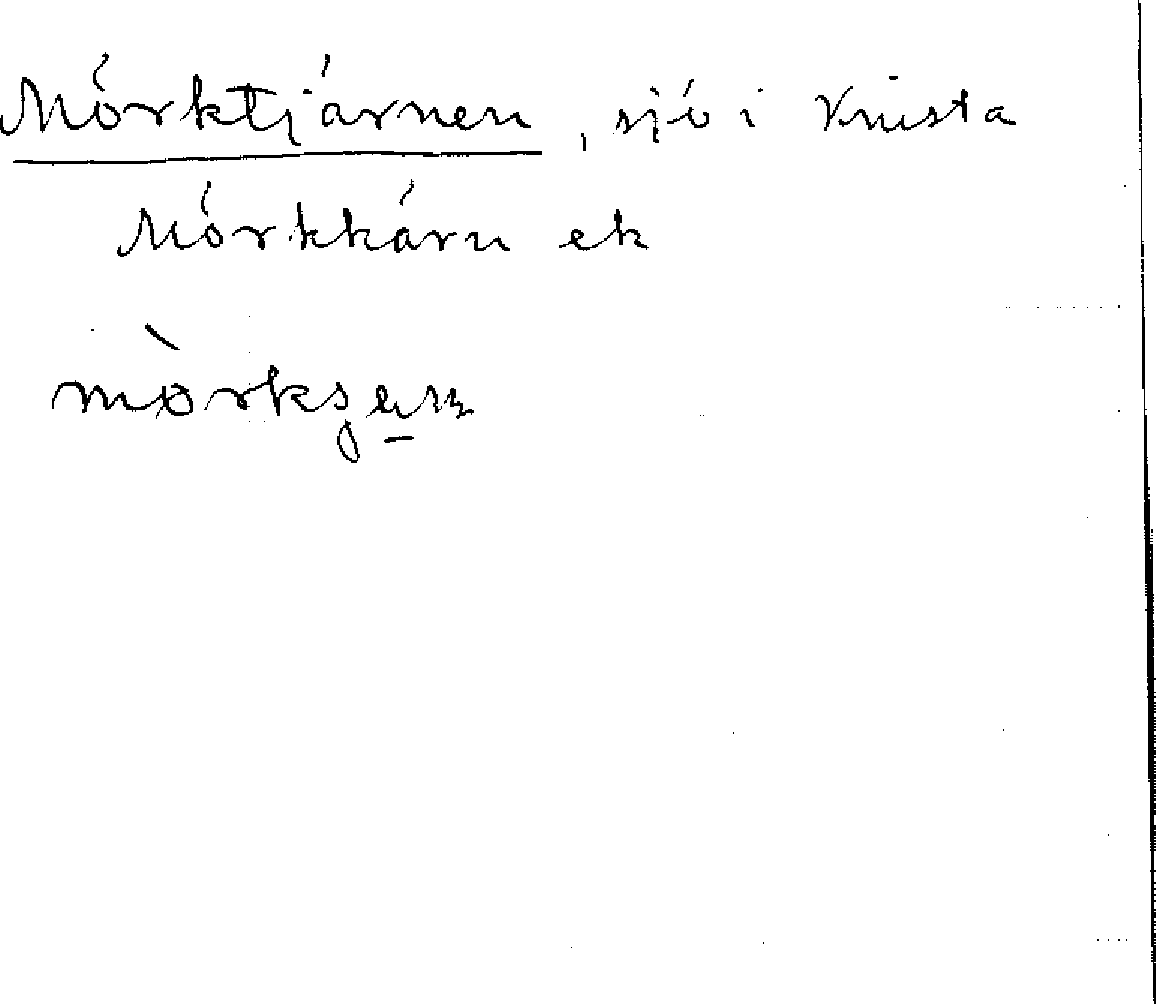 Mörktjärnen, sjö i Knista
Mörkkärn ek